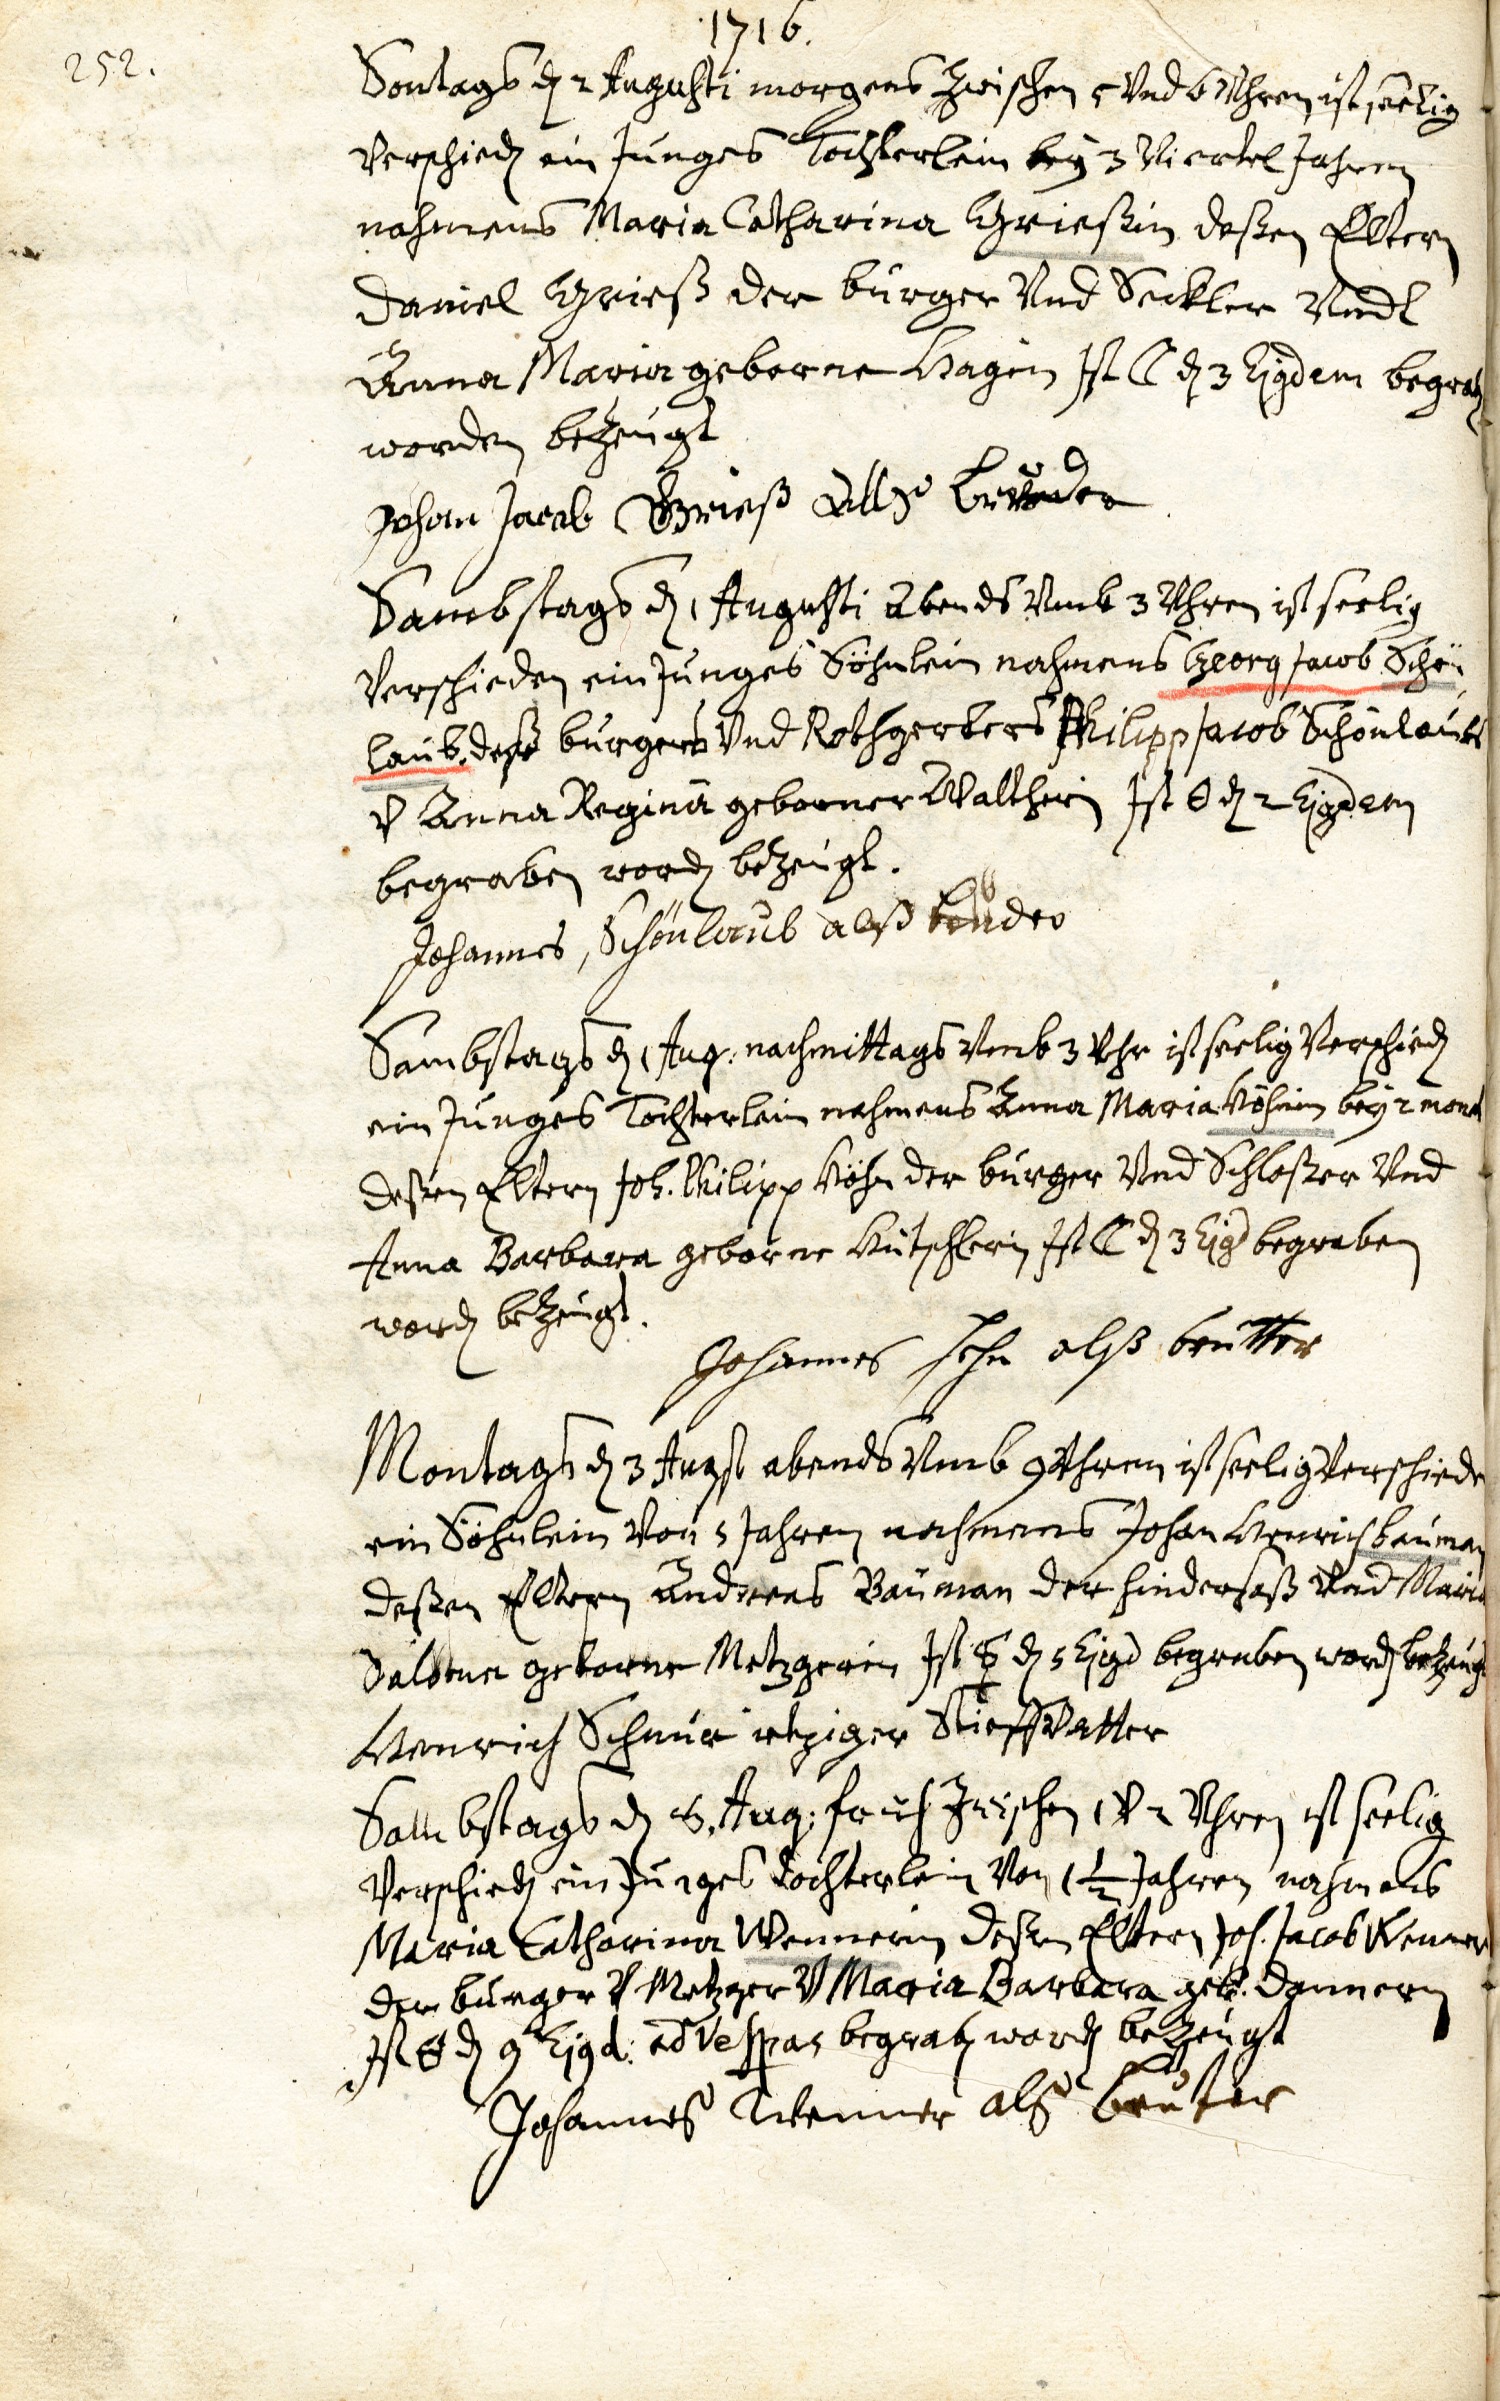 1716.
252.
Sontags d 2 Augusti morgens zwischen 5 Vnd 6 Vhren ist seelig
Verschied ein Junges Tochterlein bey 3 Viertel Jahren
nahmens Maria Catharina Grießin deßen Eltern
Daniel Grieß der burger Vnd Seckler Vnd
Anna Maria geborne Hagin Ist ☾ d 3 Ejgdem begrab
worden bezeugt
Johan Jacob Grieß Alß bruder
Sambstags d 1 Augusti Abends Vmb 3 Vhren ist seelig
Verschieden ein Junges Söhnlein nahmens Georg Jacob Schön
laub, deß burgers Vnd Rothgerbers Philipp Jacob Schönlaubs
V Anna Regina geborner Waltherin Ist d 2 Ejgdem
begraben word bezeugt.
Johannes, Schönlaub alß bruder
Sambstags d 1 Aug: nachmittags Vmb 3 Vhr ist seelig Verschied
ein Junges Tochterlein nahmens Anna Maria Höhnin bey 2 monat
deßen Eltern Joh. Philipp Höhn der burger Vnd Schloßer Vnd
Anna Barbara geborne Ist ☾ d 3 Ejgd begraben
word bezeugt.
Johannes alß brutter
Montags d 3 Augst abends Vmb 9 Vhren ist seelig Verschiede
ein Söhnlein Von 5 Jahren nahmens Johan Henrich bauman
deßen Eltern Andreas Bauman der hindersaß Vnd Maria
Salome geborne Metzgerin Ist ☿ d 5 Ejgd begraben word bezeugt
Henrich Schnur ietziger Stieffvatter
Sambstags d 8. Aug: früh Zwischen 1 V 2 Vhren ist seelig
Verschied ein Junges Tochterlein Von 1 1/2 Jahren nahmens
Maria Catharina Wennerin deßen Eltern Joh. Jacob Wenner
der burger V Metzger V Maria Barbara geb. Dannern
Ist d 9 Ejgd: ad Vesperas begrab word bezeugt
Johannes Wenner alß bruter